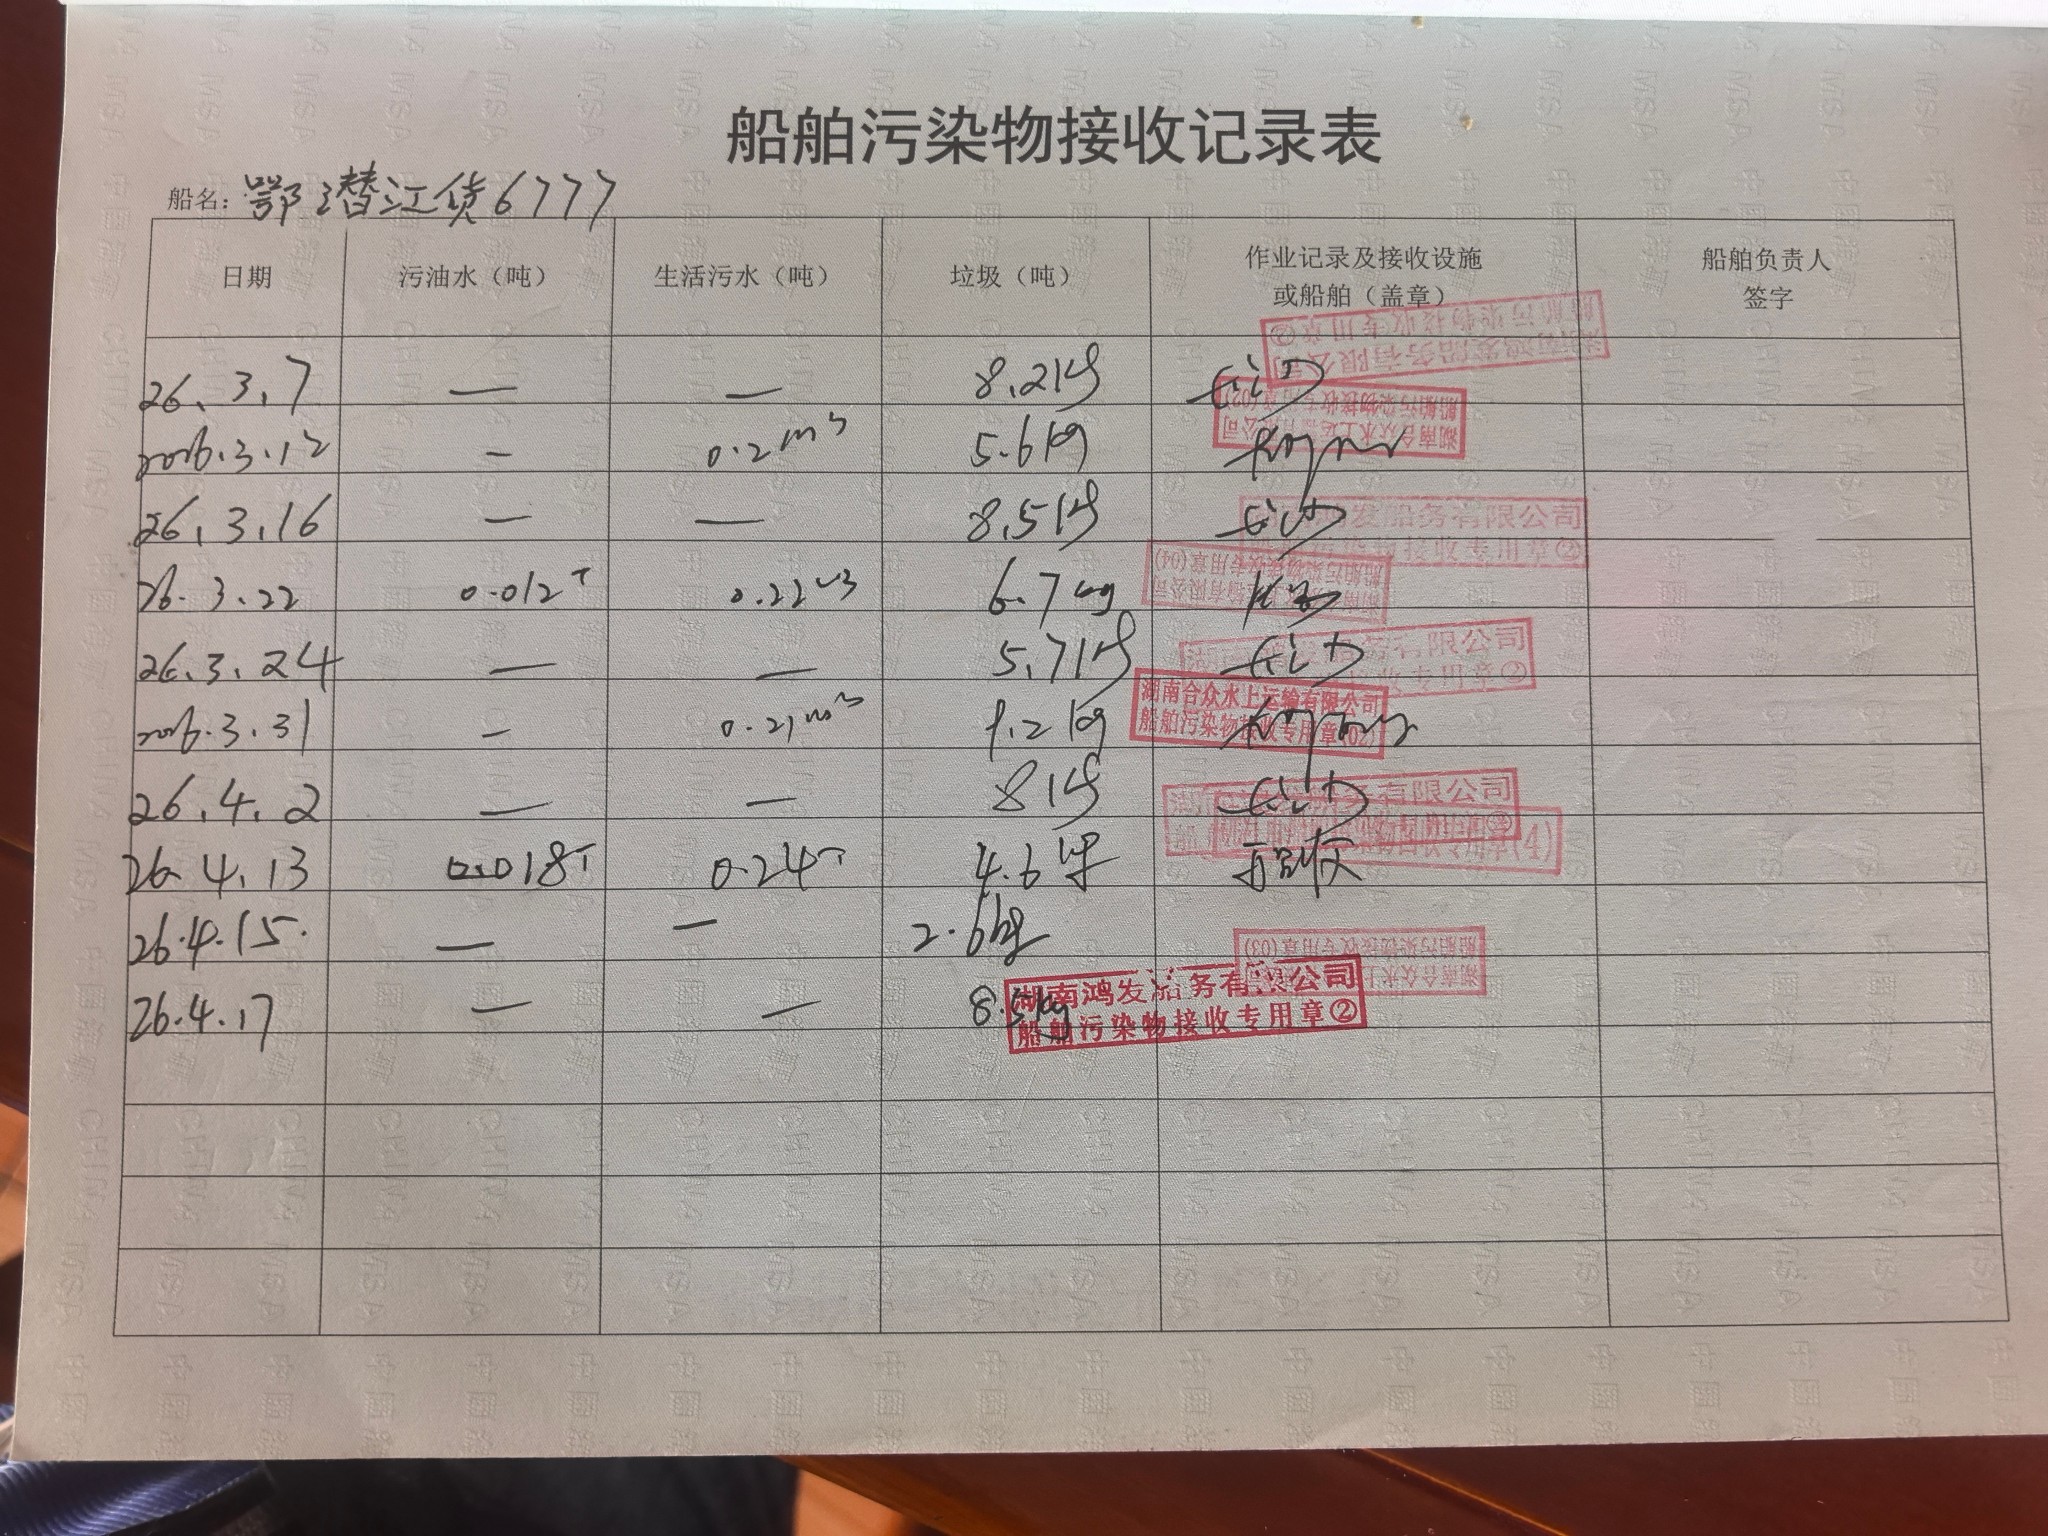 船舶污染物接收记录表
船名：鄂潜江货6777
日期 污油水（吨） 生活污水（吨） 垃圾（吨） 作业记录及接收设施或船舶（盖章） 船舶负责人签字
26.3.7 — — 8.2kg
湖南鸿发船务有限公司
船舶污染物接收专用章②
2026.3.12 - 0.2m3 5.6kg
湖南合众水上运输有限公司
船舶污染物接收专用章(02)
26.3.16 — — 8.5kg
发船务有限公司
污染物接收专用章②
26.3.22 0.012T 0.22m3 6.7kg
船舶污染物接收专用章(04)
26.3.24 — — 5.7kg
务有限公司
收专用章②
2026.3.31 - 0.21m3 1.2kg
湖南合众水上运输有限公司
船舶污染物接收专用章(02)
26.4.2 — — 8kg
务有限公司
专用章(4)
26.4.13 0.018T 0.24T 4.6kg
26.4.15. — — 2.6kg
湖南合众水上
船舶污染物接收专用章(03)
26.4.17 — — 8.5kg
湖南鸿发船务有限公司
船舶污染物接收专用章②